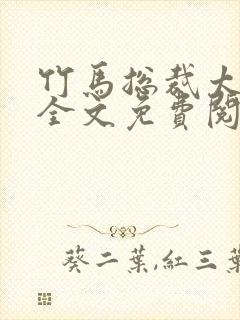 竹馬总裁大
全文免費閱
葵二葉,紅三葉